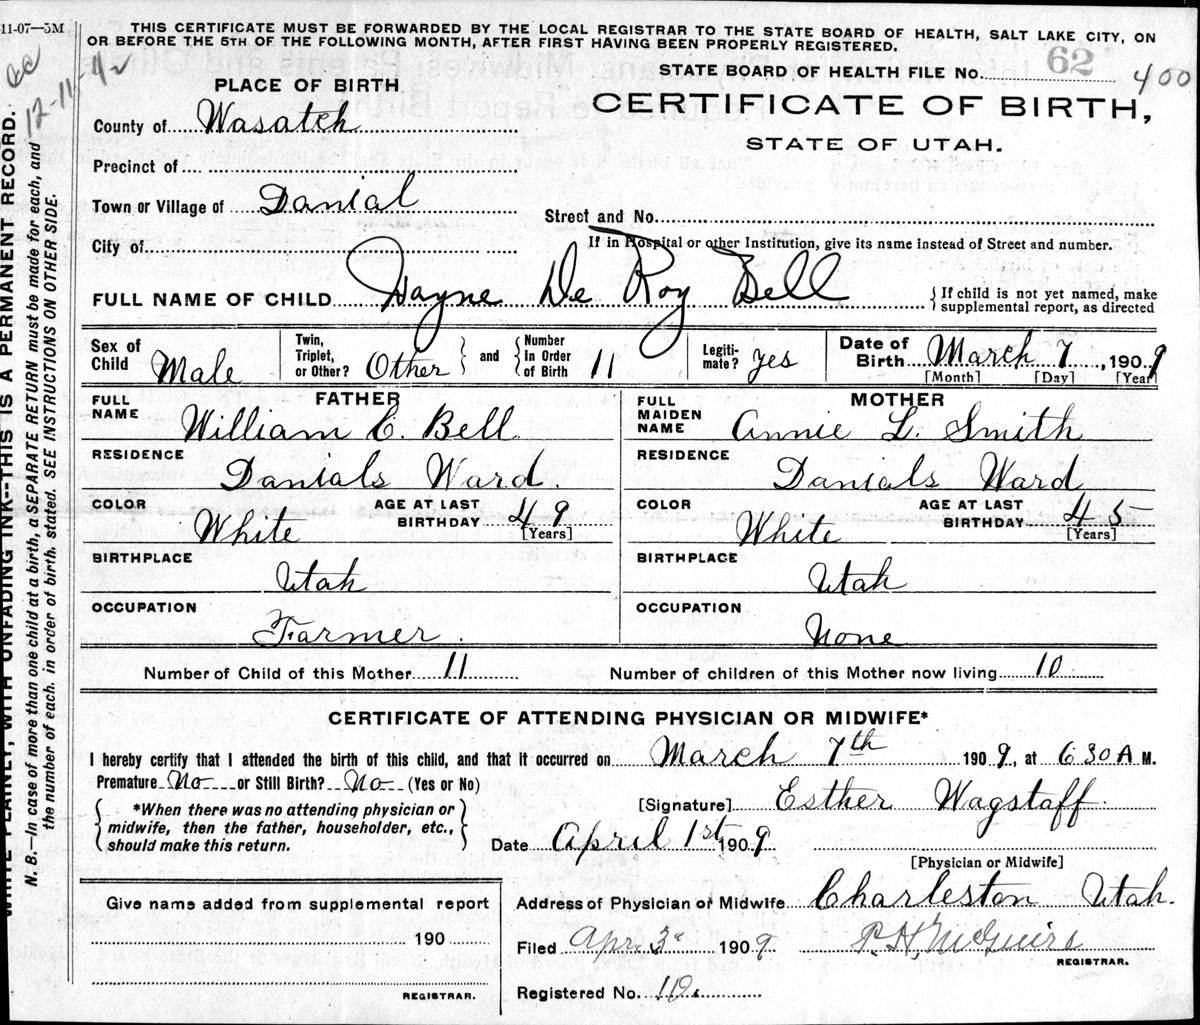 11-07—5M
THIS CERTIFICATE MUST BE FORWARDED BY THE LOCAL REGISTRAR TO THE STATE BOARD OF HEALTH, SALT LAKE CITY, ON
OR BEFORE THE 5TH OF THE FOLLOWING MONTH, AFTER FIRST HAVING BEEN PROPERLY REGISTERED.
STATE BOARD OF HEALTH FILE No. 62 400
PLACE OF BIRTH
CERTIFICATE OF BIRTH,
STATE OF UTAH.
County of Wasatch
Precinct of
Town or Village of Danial
Street and No.
City of
If in Hospital or other Institution, give its name instead of Street and number.
FULL NAME OF CHILD Wayne De Roy Bell
{If child is not yet named, make
supplemental report, as directed
Sex of Child Male
Twin, Triplet, or Other? Other } and { Number In Order of Birth 11
Legiti-mate? yes
Date of Birth March 7, 1909
[Month] [Day] [Year]
FATHER
FULL NAME William C. Bell
RESIDENCE Danials Ward.
COLOR White
AGE AT LAST BIRTHDAY 49 [Years]
BIRTHPLACE Utah
OCCUPATION Farmer.
MOTHER
FULL MAIDEN NAME Annie L. Smith
RESIDENCE Danials Ward
COLOR White
AGE AT LAST BIRTHDAY 45 [Years]
BIRTHPLACE Utah
OCCUPATION None
Number of Child of this Mother 11
Number of children of this Mother now living 10
CERTIFICATE OF ATTENDING PHYSICIAN OR MIDWIFE*
I hereby certify that I attended the birth of this child, and that it occurred on March 7th 1909, at 6 30 A M.
Premature No or Still Birth? No (Yes or No)
{*When there was no attending physician or
midwife, then the father, householder, etc.,
should make this return.}
[Signature] Esther Wagstaff
Date April 1st 1909
[Physician or Midwife]
Give name added from supplemental report
190
REGISTRAR.
Address of Physician or Midwife Charleston Utah.
Filed Apr. 3d 1909 P. H. McGuire
REGISTRAR.
Registered No. 110.
WRITE PLAINLY, WITH UNFADING INK--THIS IS A PERMANENT RECORD.
N. B.—In case of more than one child at a birth, a SEPARATE RETURN must be made for each, and
the number of each, in order of birth, stated. SEE INSTRUCTIONS ON OTHER SIDE.